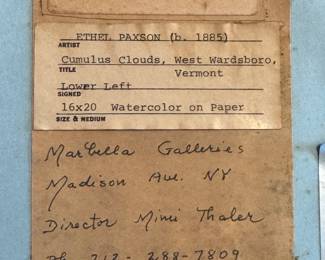 ETHEL PAXSON (b. 1885)
ARTIST
Cumulus Clouds, West Wardsboro,
TITLE
Vermont
Lower Left
SIGNED
16x20 Watercolor on Paper
SIZE & MEDIUM
Marbella Galleries
Madison Ave. NY
Director Mimi Thaler
Ph 212-288-7809